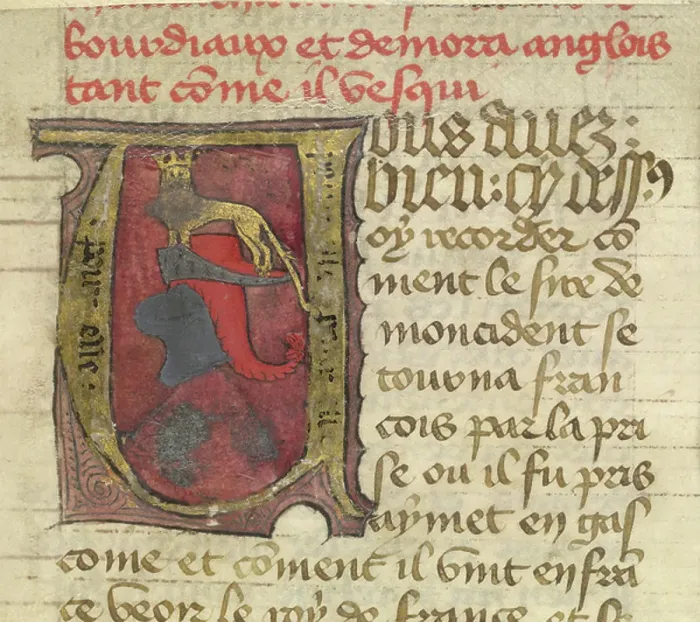 bourdiaux et demora anglois
tant cõme il vesqui
Vous auez :
bien : cy dessꝰ
oy recorder cõ
ment le sire de
moncident se
tourna fran
cois par la pri
se ou il fu pris
aymet en gas
come et cõment il vint en frã
ce veoir le roy de france et se